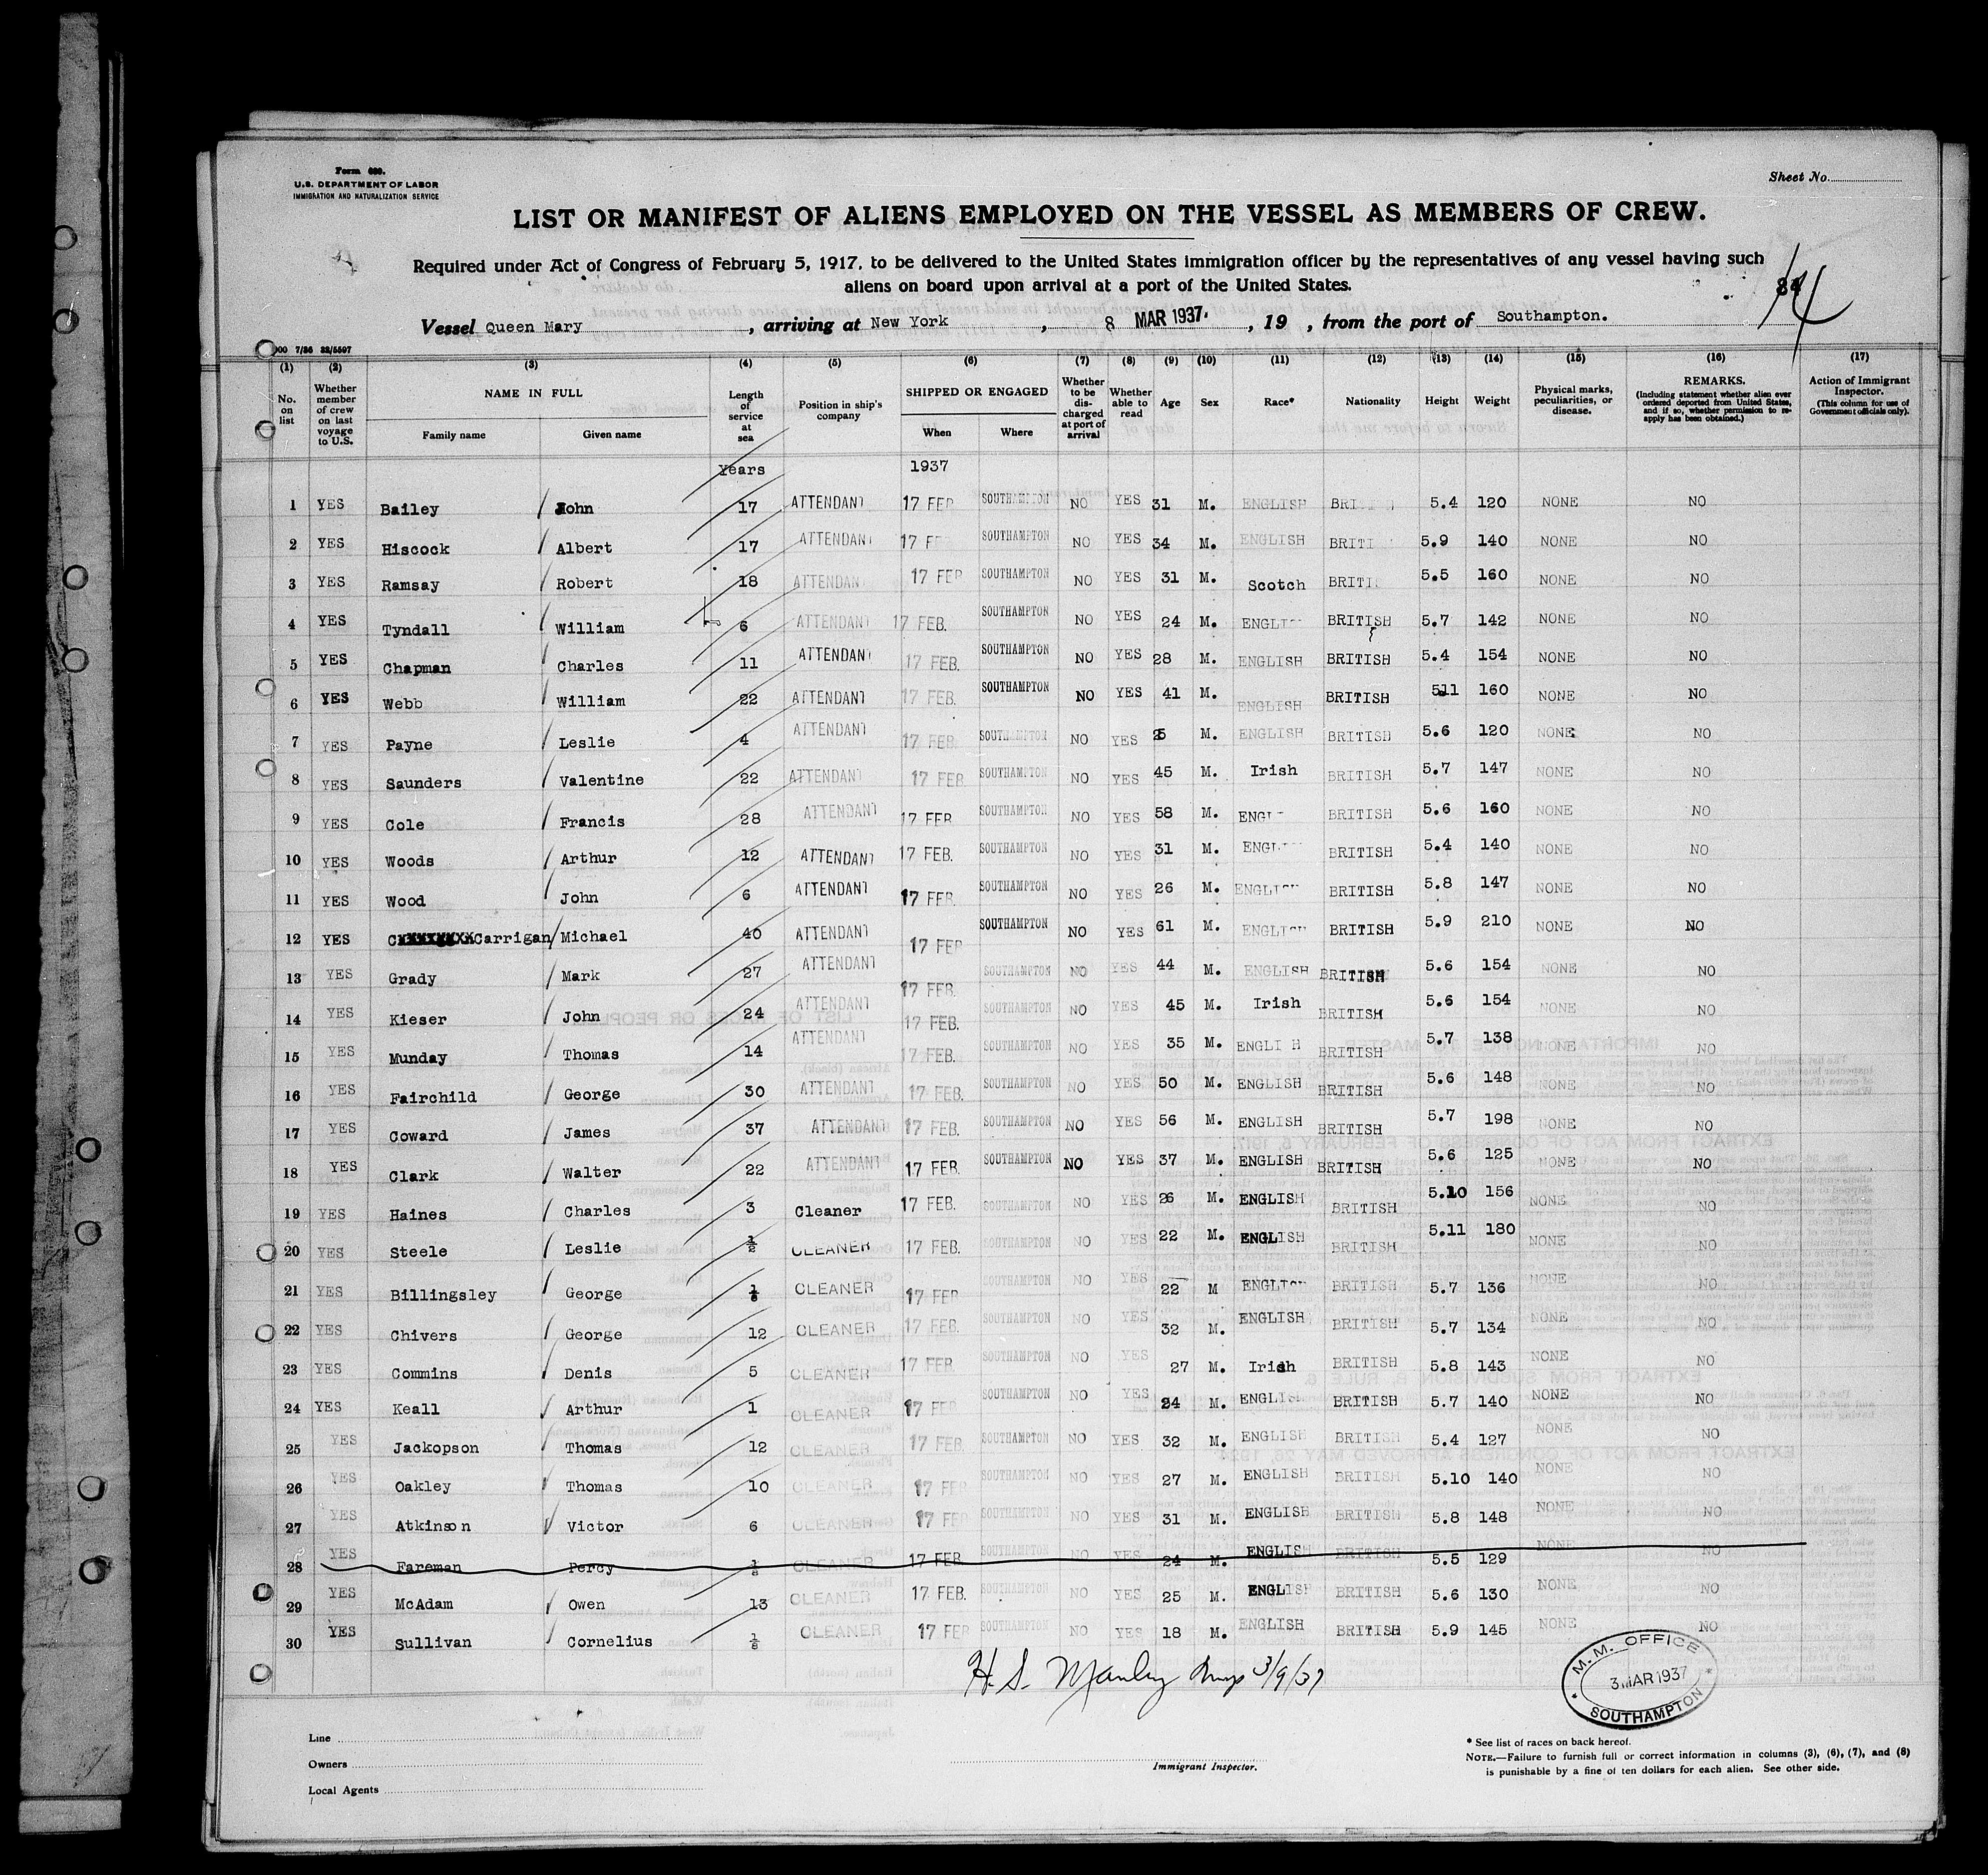 Form 680.
U.S. DEPARTMENT OF LABOR
IMMIGRATION AND NATURALIZATION SERVICE
Sheet No.
LIST OR MANIFEST OF ALIENS EMPLOYED ON THE VESSEL AS MEMBERS OF CREW.
Required under Act of Congress of February 5, 1917, to be delivered to the United States immigration officer by the representatives of any vessel having such
aliens on board upon arrival at a port of the United States.
84
14
Vessel Queen Mary, arriving at New York, 8 MAR 1937, 19 , from the port of Southampton.
7/36 33/5597
(1) (2) (3) (4) (5) (6) (7) (8) (9) (10) (11) (12) (13) (14) (15) (16) (17)
No. on list
Whether member of crew on last voyage to U.S.
NAME IN FULL
Family name Given name
Length of service at sea
Position in ship's company
SHIPPED OR ENGAGED
When Where
Whether to be discharged at port of arrival
Whether able to read
Age Sex Race* Nationality Height Weight
Physical marks, peculiarities, or disease.
REMARKS.
(Including statement whether alien ever ordered deported from United States, and if so, whether permission to reapply has been obtained.)
Action of Immigrant Inspector.
(This column for use of Government officials only).
Years 1937
1 YES Bailey John 17 ATTENDANT 17 FEB SOUTHAMPTON NO YES 31 M. ENGLISH BRI 5.4 120 NONE NO
2 YES Hiscock Albert 17 ATTENDANT 17 F SOUTHAMPTON NO YES 34 M. ENGLISH BRITI 5.9 140 NONE NO
3 YES Ramsay Robert 18 ATTENDAN 17 FEB SOUTHAMPTON NO YES 31 M. Scotch BRITI 5.5 160 NONE NO
4 YES Tyndall William 6 ATTENDANT 17 FEB. SOUTHAMPTON NO YES 24 M. ENGLI BRITISH 5.7 142 NONE NO
5 YES Chapman Charles 11 ATTENDANT 17 FEB. SOUTHAMPTON NO YES 28 M. ENGLISH BRITISH 5.4 154 NONE NO
6 YES Webb William 22 ATTENDANT 17 FEB. SOUTHAMPTON NO YES 41 M. ENGLISH BRITISH 5.11 160 NONE NO
7 YES Payne Leslie 4 ATTENDANT 17 FEB. SOUTHAMPTON NO YES 25 M. ENGLISH BRITISH 5.6 120 NONE NO
8 YES Saunders Valentine 22 ATTENDANT 17 FEB SOUTHAMPTON NO YES 45 M. Irish BRITISH 5.7 147 NONE NO
9 YES Cole Francis 28 ATTENDANT 17 FEB SOUTHAMPTON NO YES 58 M. ENGL BRITISH 5.6 160 NONE NO
10 YES Woods Arthur 12 ATTENDANT 17 FEB. SOUTHAMPTON NO YES 31 M. ENGL BRITISH 5.4 140 NONE NO
11 YES Wood John 6 ATTENDANT 17 FEB. SOUTHAMPTON NO YES 26 M. ENGLISH BRITISH 5.8 147 NONE NO
12 YES Carrigan Michael 40 ATTENDANT 17 FEB SOUTHAMPTON NO YES 61 M. ENGLISH BRITISH 5.9 210 NONE NO
13 YES Grady Mark 27 ATTENDANT 17 FEB. SOUTHAMPTON NO YES 44 M. ENGLISH BRITISH 5.6 154 NONE NO
14 YES Kieser John 24 ATTENDANT 17 FEB. SOUTHAMPTON NO YES 45 M. Irish BRITISH 5.6 154 NONE NO
15 YES Munday Thomas 14 ATTENDANT 17 FEB. SOUTHAMPTON NO YES 35 M. ENGLI H BRITISH 5.7 138 NONE NO
16 YES Fairchild George 30 ATTENDANT 17 FEB. SOUTHAMPTON NO YES 50 M. ENGLISH BRITISH 5.6 148 NONE NO
17 YES Coward James 37 ATTENDANT 17 FEB. SOUTHAMPTON NO YES 56 M. ENGLISH BRITISH 5.7 198 NONE NO
18 YES Clark Walter 22 ATTENDANT 17 FEB. SOUTHAMPTON NO YES 37 M. ENGLISH BRITISH 5.6 125 NONE NO
19 YES Haines Charles 3 Cleaner 17 FEB. SOUTHAMPTON NO YES 26 M. ENGLISH BRITISH 5.10 156 NONE NO
20 YES Steele Leslie ½ CLEANER 17 FEB. SOUTHAMPTON NO YES 22 M. ENGLISH BRITISH 5.11 180 NONE NO
21 YES Billingsley George CLEANER 17 FEB SOUTHAMPTON NO YES 22 M ENGLISH BRITISH 5.7 136 NONE NO
22 YES Chivers George 12 CLEANER 17 FEB. SOUTHAMPTON NO YES 32 M. ENGLISH BRITISH 5.7 134 NONE NO
23 YES Commins Denis 5 CLEANER 17 FEB. SOUTHAMPTON NO YES 27 M. Irish BRITISH 5.8 143 NONE NO
24 YES Keall Arthur 1 CLEANER 17 FEB SOUTHAMPTON NO YES 24 M. ENGLISH BRITISH 5.7 140 NONE NO
25 YES Jackopson Thomas 12 CLEANER 17 FEB. SOUTHAMPTON NO YES 32 M. ENGLISH BRITISH 5.4 127 NONE NO
26 YES Oakley Thomas 10 CLEANER 17 FEB SOUTHAMPTON NO YES 27 M. ENGLISH BRITISH 5.10 140 NONE NO
27 YES Atkinson Victor 6 CLEANER 17 FEB SOUTHAMPTON NO YES 31 M. ENGLISH BRITISH 5.8 148 NONE NO
28 YES Fareman Percy CLEANER 17 FEB. SOUTHAMPTON NO YES 24 M. ENGLISH BRITISH 5.5 129 NONE NO
29 YES McAdam Owen 13 CLEANER 17 FEB. SOUTHAMPTON NO YES 25 M. ENGLISH BRITISH 5.6 130 NONE NO
30 YES Sullivan Cornelius CLEANER 17 FEB SOUTHAMPTON NO YES 18 M. ENGLISH BRITISH 5.9 145 NONE NO
H. S. Manley Insp 3/9/37
M. M. OFFICE
3 MAR 1937
SOUTHAMPTON
Line
Owners
Local Agents
Immigrant Inspector.
* See list of races on back hereof.
NOTE.—Failure to furnish full or correct information in columns (3), (6), (7), and (8)
is punishable by a fine of ten dollars for each alien. See other side.